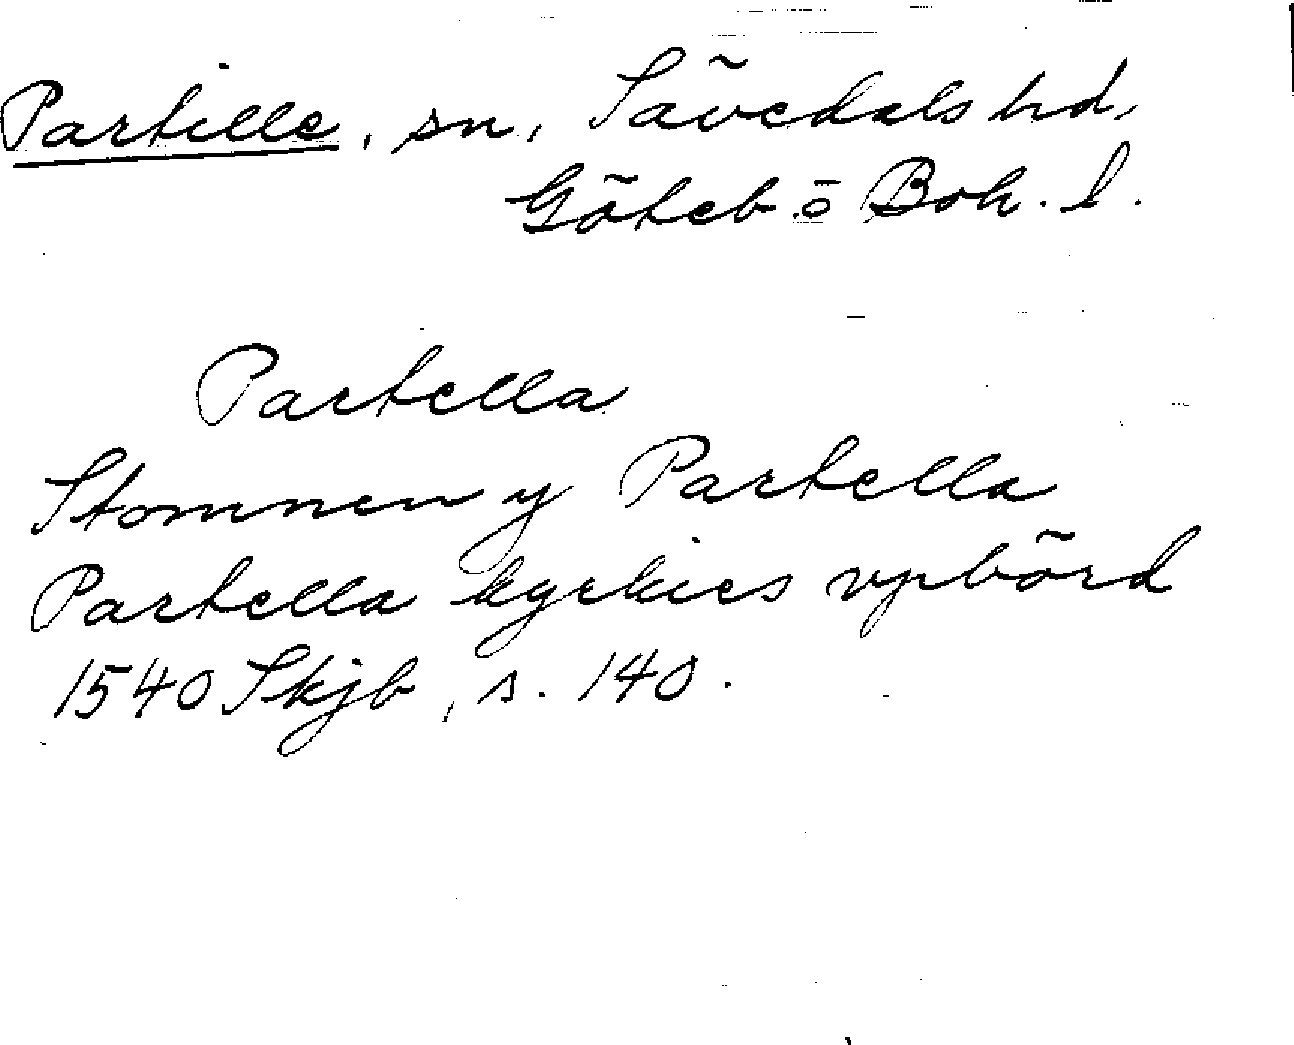 Partille, sn, Sävedals hd,
Göteb ö Boh. l.
Partella
Stomnen y Partella
Partella kyrkies vpbörd
1540 Skjb, s. 140.